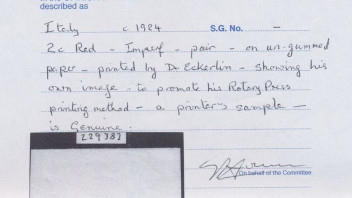 described as
Italy c 1924 S.G. No. –
2c Red - Imperf - pair - on un-gummed
paper - printed by Dr Eckerlin - showing his
own image - to promote his Rotary Press
printing method - a printer's sample -
is Genuine.
229383
On behalf of the Committee